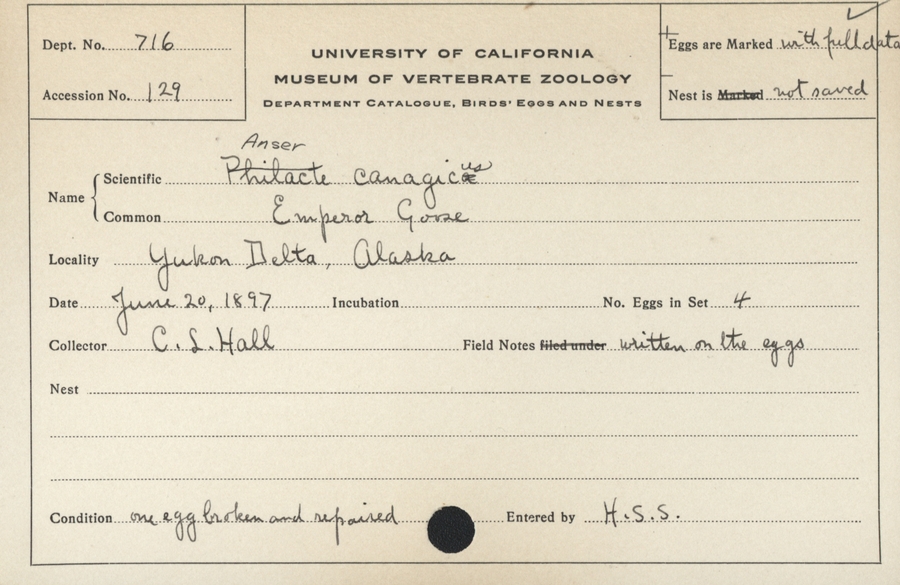 Dept. No. 716
Accession No. 129
UNIVERSITY OF CALIFORNIA
MUSEUM OF VERTEBRATE ZOOLOGY
DEPARTMENT CATALOGUE, BIRDS' EGGS AND NESTS
Eggs are Marked with full data
Nest is Marked not saved
Anser
Name Scientific Philacte canagicus
Common Emperor Goose
Locality Yukon Delta, Alaska
Date June 20, 1897 Incubation No. Eggs in Set 4
Collector C. L. Hall Field Notes filed under written on the eggs
Nest
Condition one egg broken and repaired Entered by H.S.S.